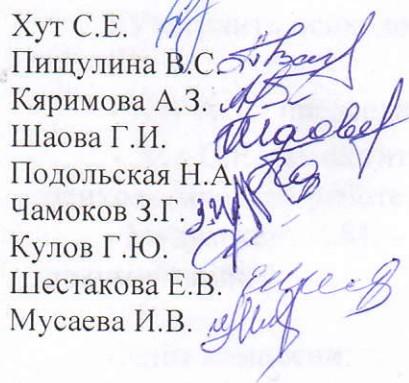 Хут С.Е.
Пищулина В.С.
Кяримова А.З.
Шаова Г.И.
Подольская Н.А.
Чамоков З.Г.
Кулов Г.Ю.
Шестакова Е.В.
Мусаева И.В.